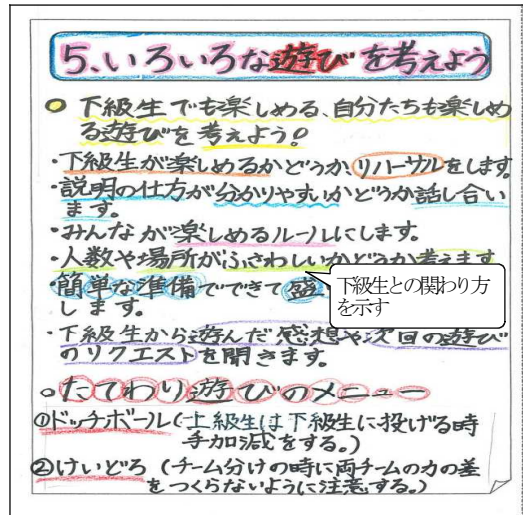 5.いろいろな遊びを考えよう
○ 下級生でも楽しめる、自分たちも楽しめ
る遊びを考えよう。
・下級生が楽しめるかどうか、リハーサルをします
・説明の仕方が分かりやすいかどうか話し合い
ます。
・みんなが楽しめるルールにします。
・人数や場所がふさわしいかどうか考えます
・簡単な準備でできて盛
します。
下級生との関わり方
を示す
・下級生から遊んだ感想や次回の遊び
のリクエストを聞きます。
○たてわり遊びのメニュー
①ドッチボール(上級生は下級生に投げる時
手加減をする。)
②けいどろ(チーム分けの時に両チームの力の差
をつくらないように注意する。)